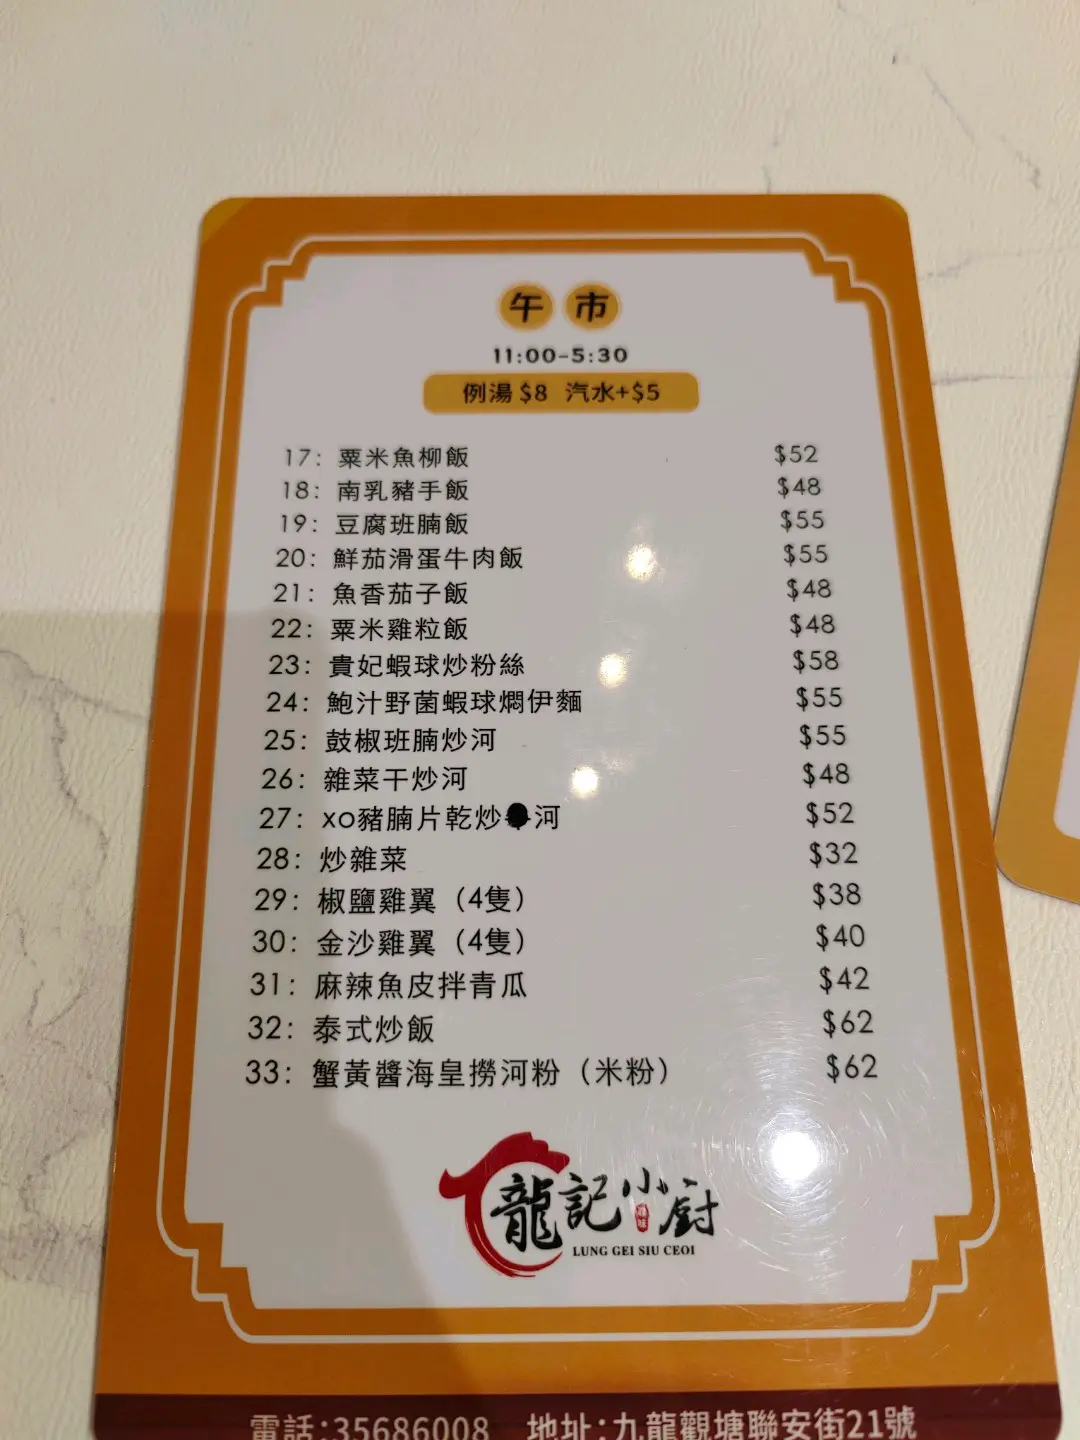 午市
11:00-5:30
例湯 $8 汽水+$5
17: 粟米魚柳飯 $52
18: 南乳豬手飯 $48
19: 豆腐班腩飯 $55
20: 鮮茄滑蛋牛肉飯 $55
21: 魚香茄子飯 $48
22: 粟米雞粒飯 $48
23: 貴妃蝦球炒粉絲 $58
24: 鮑汁野菌蝦球燜伊麵 $55
25: 鼓椒班腩炒河 $55
26: 雜菜干炒河 $48
27: xo豬腩片乾炒河 $52
28: 炒雜菜 $32
29: 椒鹽雞翼（4隻） $38
30: 金沙雞翼（4隻） $40
31: 麻辣魚皮拌青瓜 $42
32: 泰式炒飯 $62
33: 蟹黃醬海皇撈河粉（米粉） $62
龍記小廚
LUNG GEI SIU CEOI
電話:35686008 地址:九龍觀塘聯安街21號